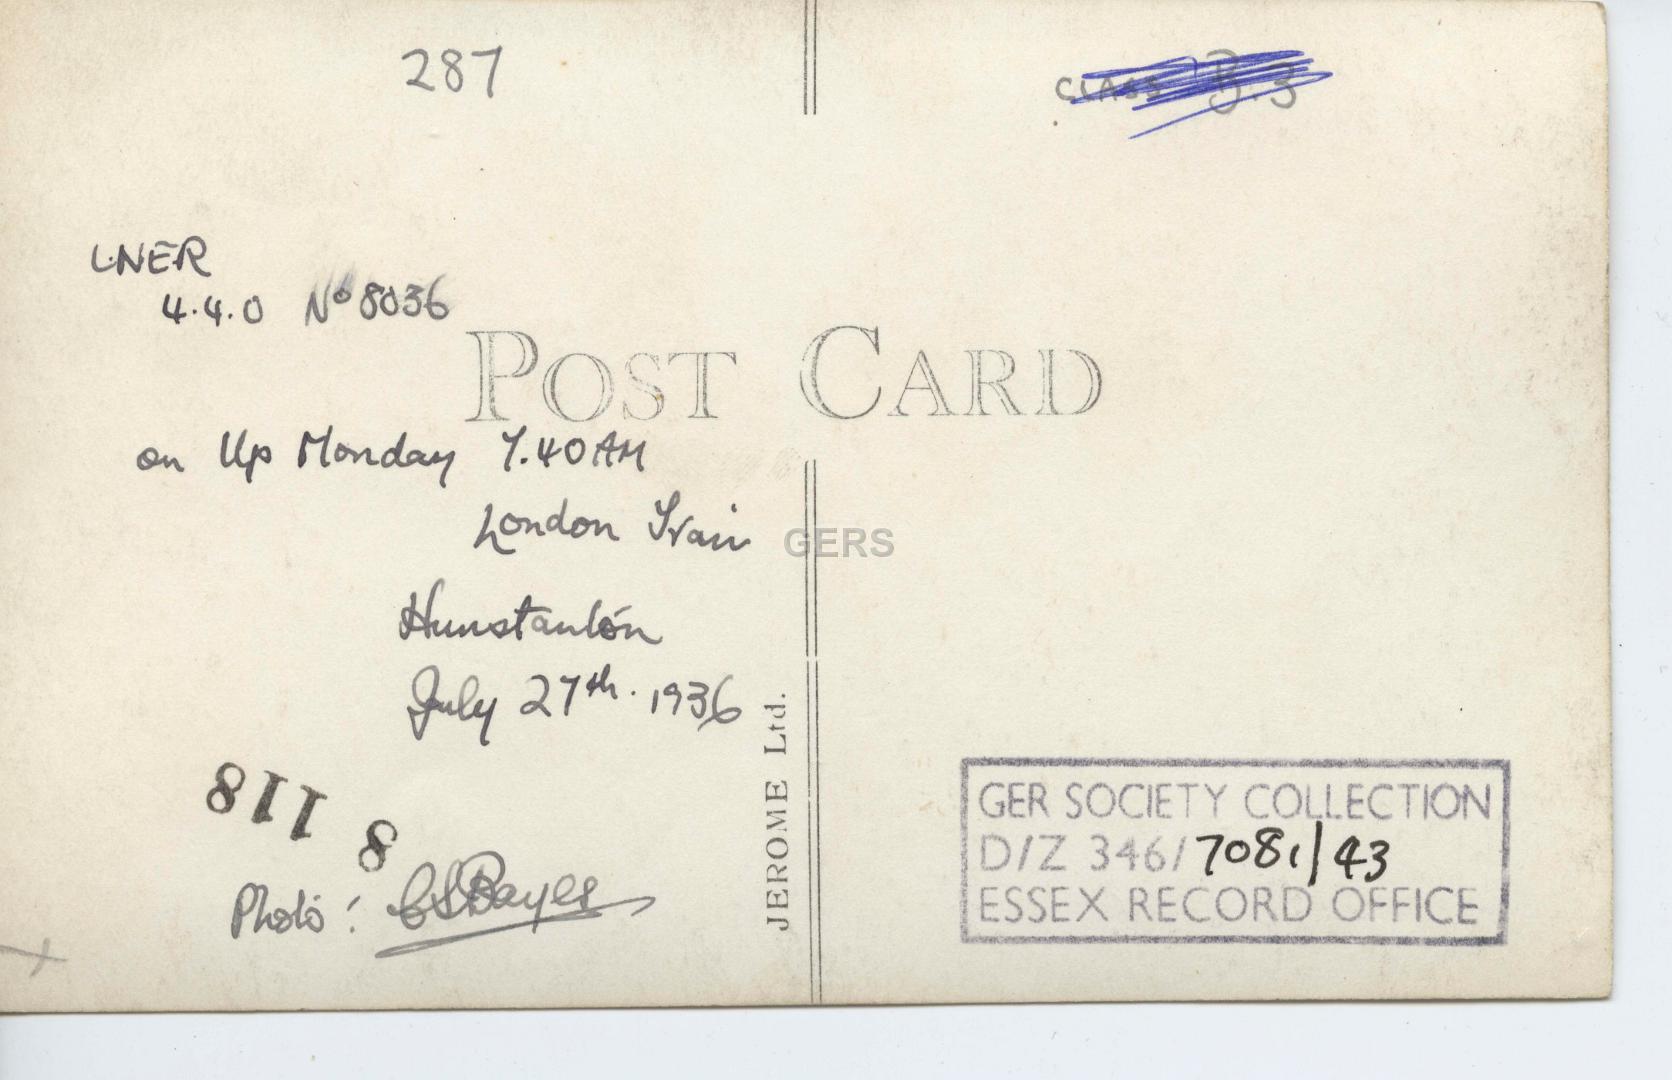 287
CLASS B.3
LNER
4.4.0 Nº 8036
POST CARD
on Up Monday 7.40 AM
London Train
GERS
Hunstanton
July 27th. 1936
JEROME Ltd.
118
8
Photo: CSBayes
GER SOCIETY COLLECTION
D/Z 346/7081/43
ESSEX RECORD OFFICE